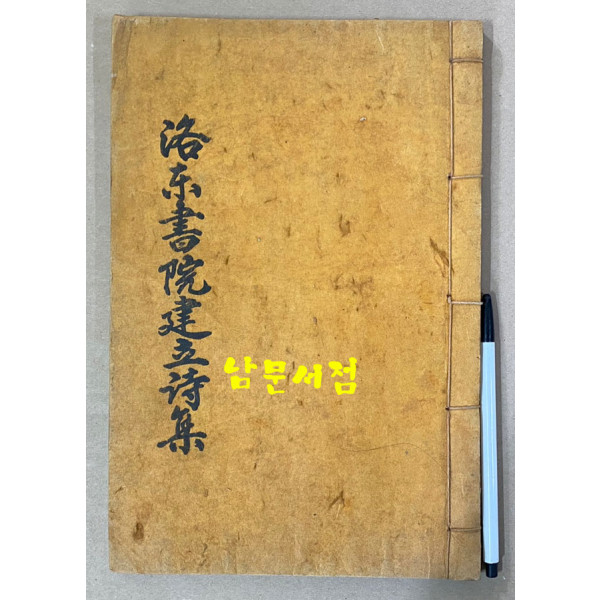 洛东書院建立詩集
남문서점